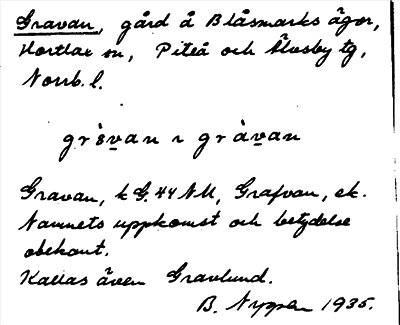 Gravan, gård å Blåsmarks ägor,
Hortlax sn, Piteå och Älvsby tg,
Norrb. l.
gràvan
Gravan, k G. 44 NM, Grafvan, ek.
Namnets uppkomst och betydelse
obekant.
Kallas även Gravlund.
B. 1935.